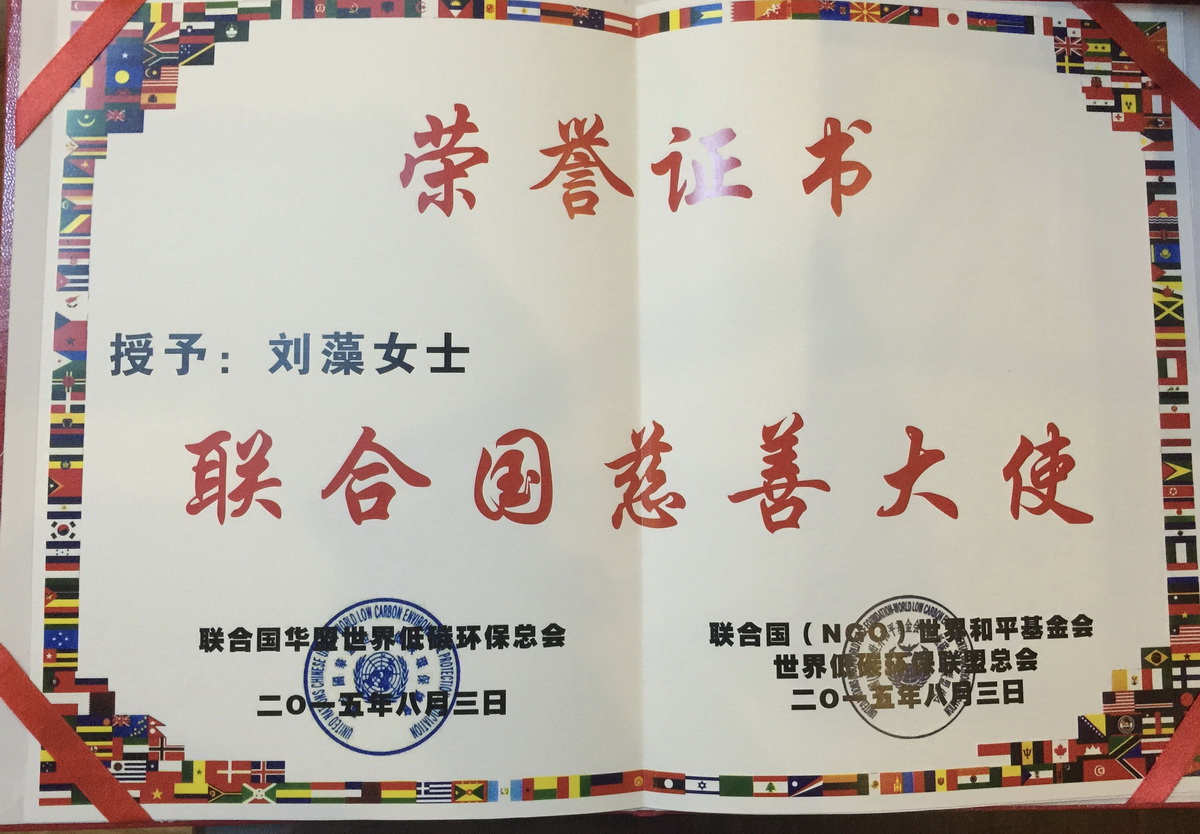 荣誉证书
授予：刘藻女士
联合国慈善大使
联合国华盟世界低碳环保总会
二〇一五年八月三日
联合国（NGO）世界和平基金会
世界低碳环保联盟总会
二〇一五年八月三日